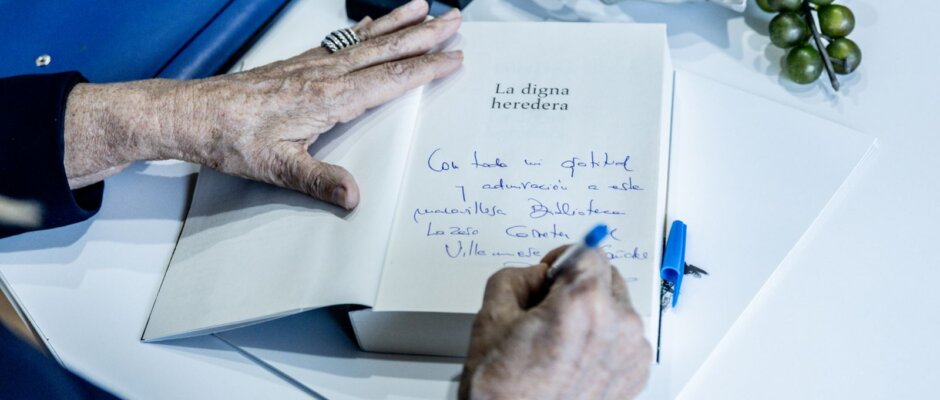 La digna
heredera
Con toda mi gratitud
y admiración a esta
maravillosa Biblioteca
Lázaro Carreter
Villanueva